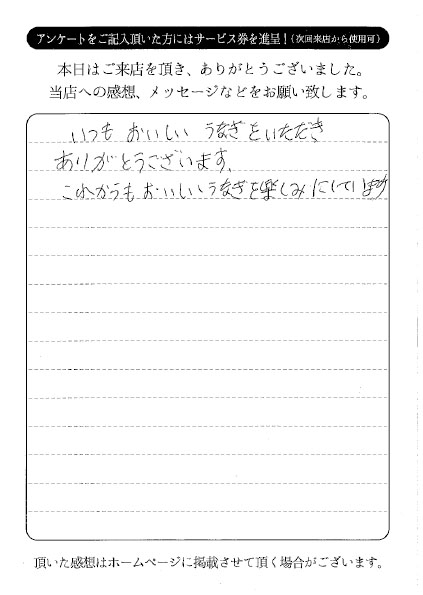 アンケートをご記入頂いた方にはサービス券を進呈!(次回来店から使用可)
本日はご来店を頂き、ありがとうございました。
当店への感想、メッセージなどをお願い致します。
いつも おいしい うなぎをいただき
ありがとうございます。
これからもおいしいうなぎを楽しみにしています
頂いた感想はホームページに掲載させて頂く場合がございます。